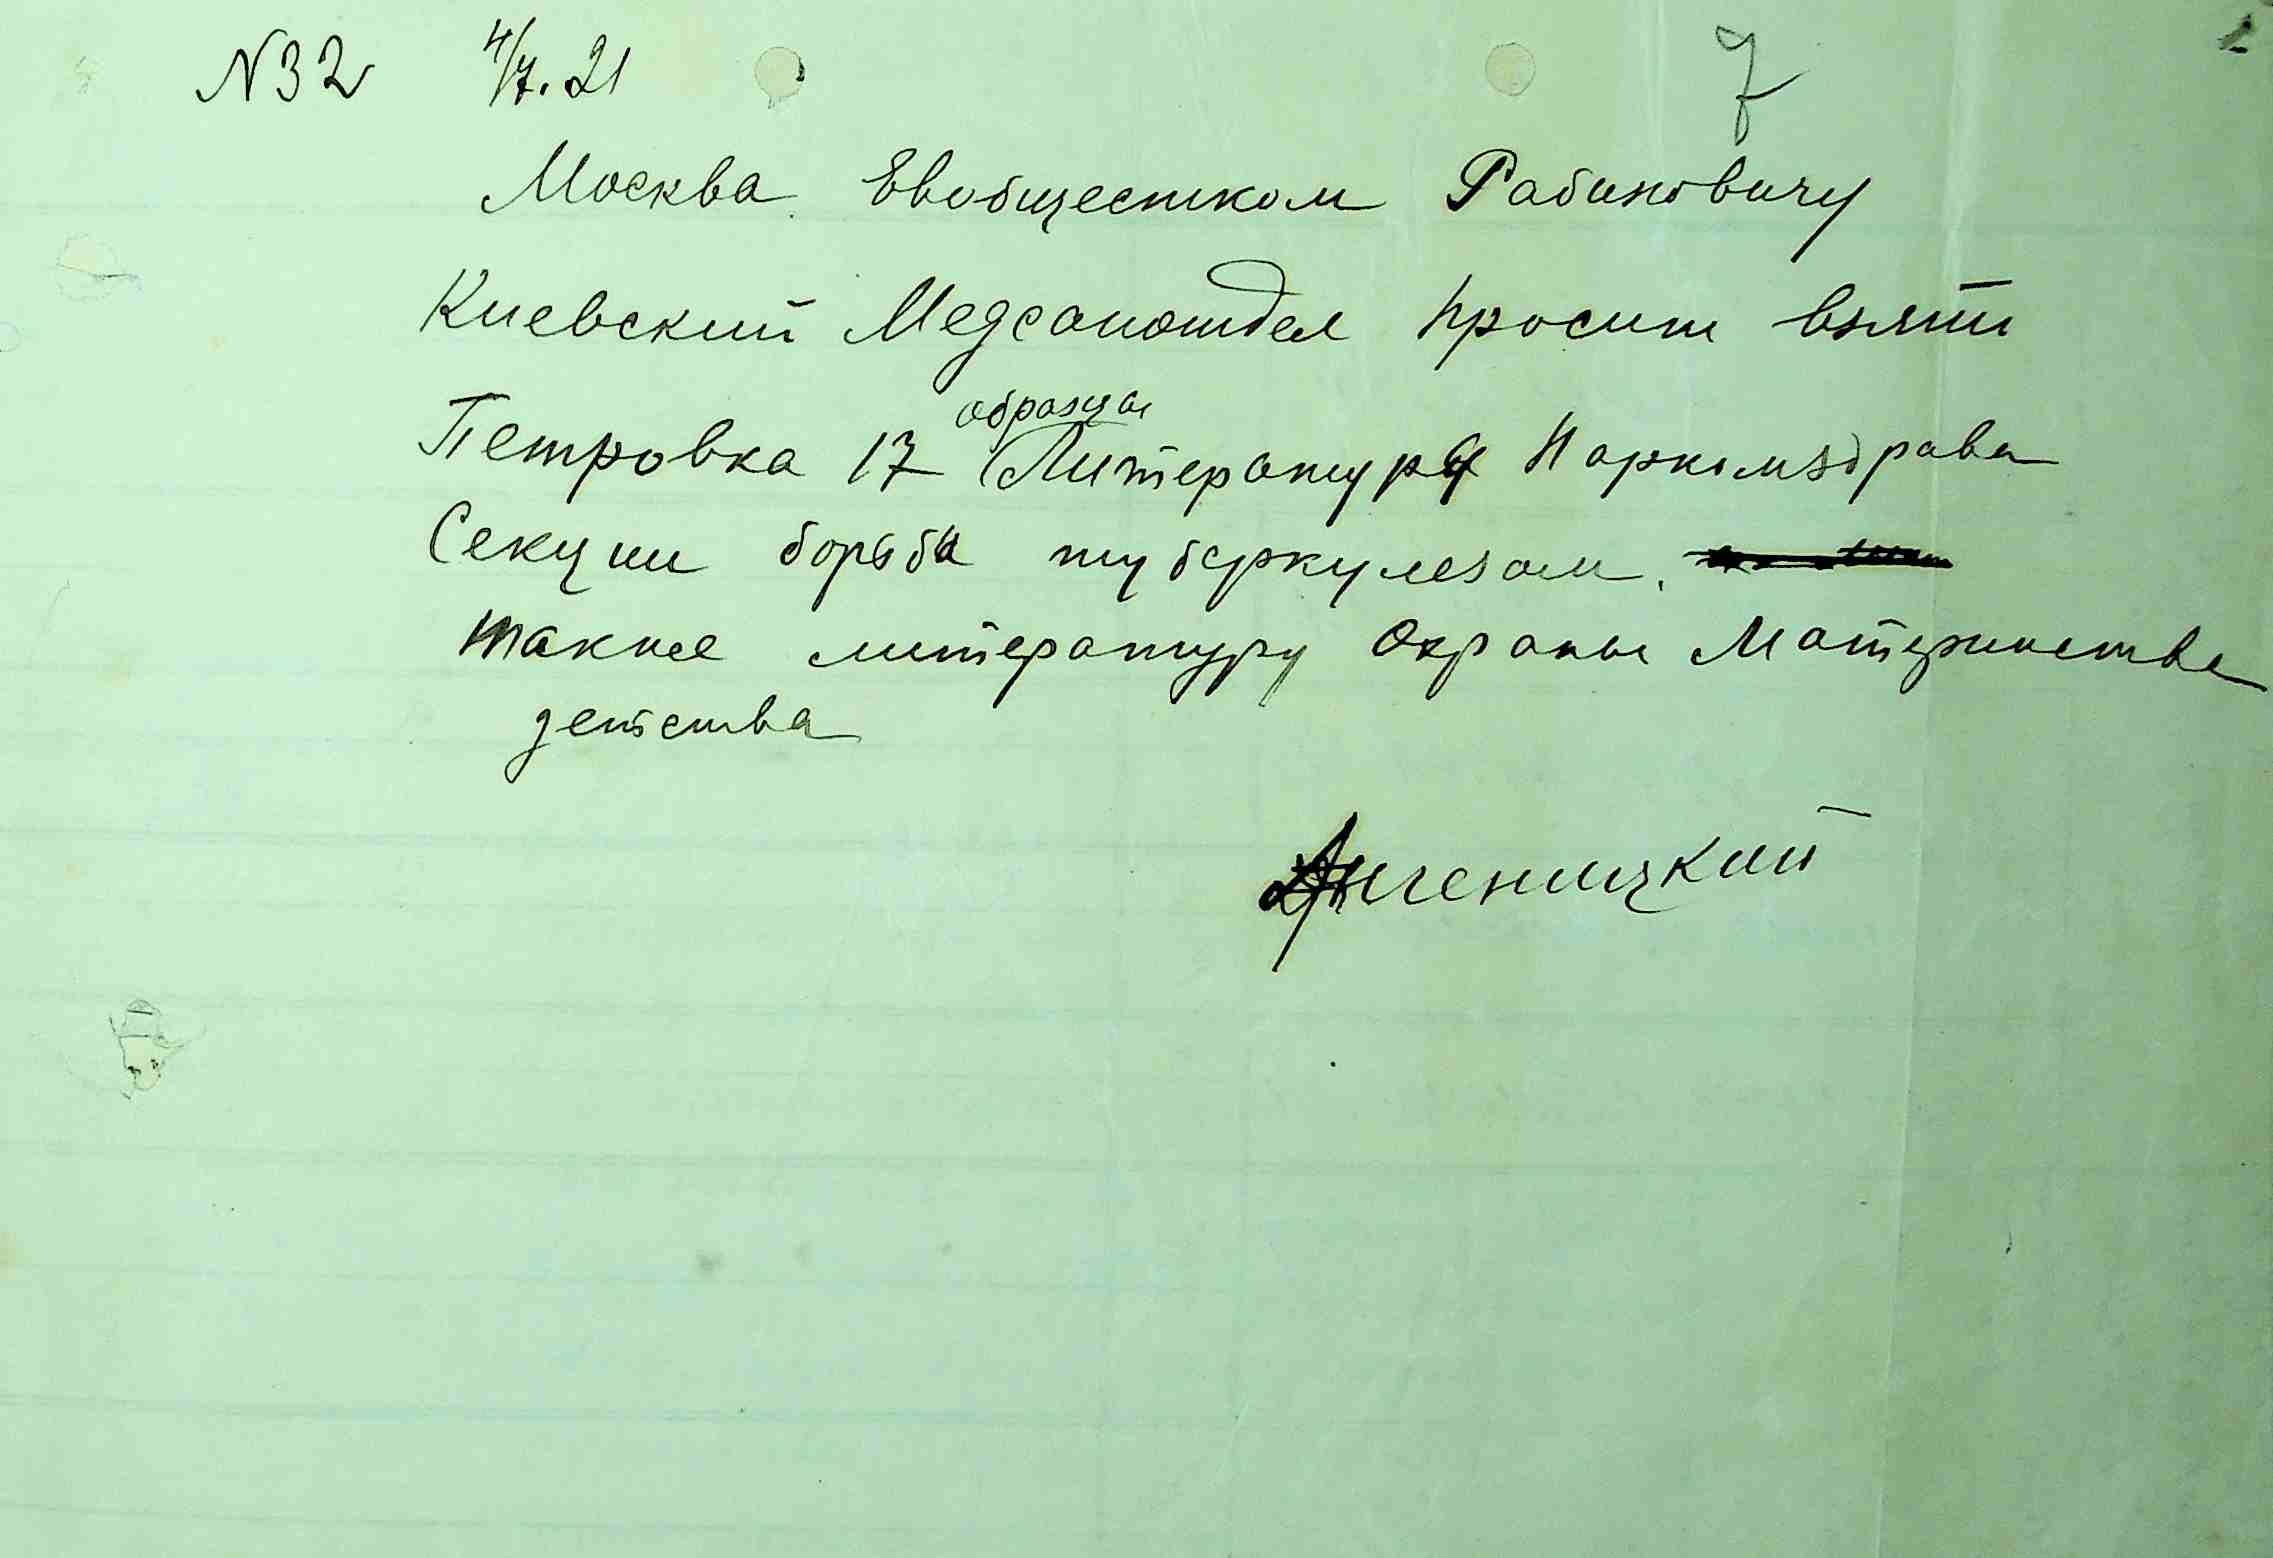 N32 4/7.21 7
Москва Евобщестком Рабиновичу
Киевский Медсанотдел просит взять
образцы
Петровка 17 Литературы Наркомздрава
Секции борьбы туберкулезом.
также литературу Охраны Материнства
детства